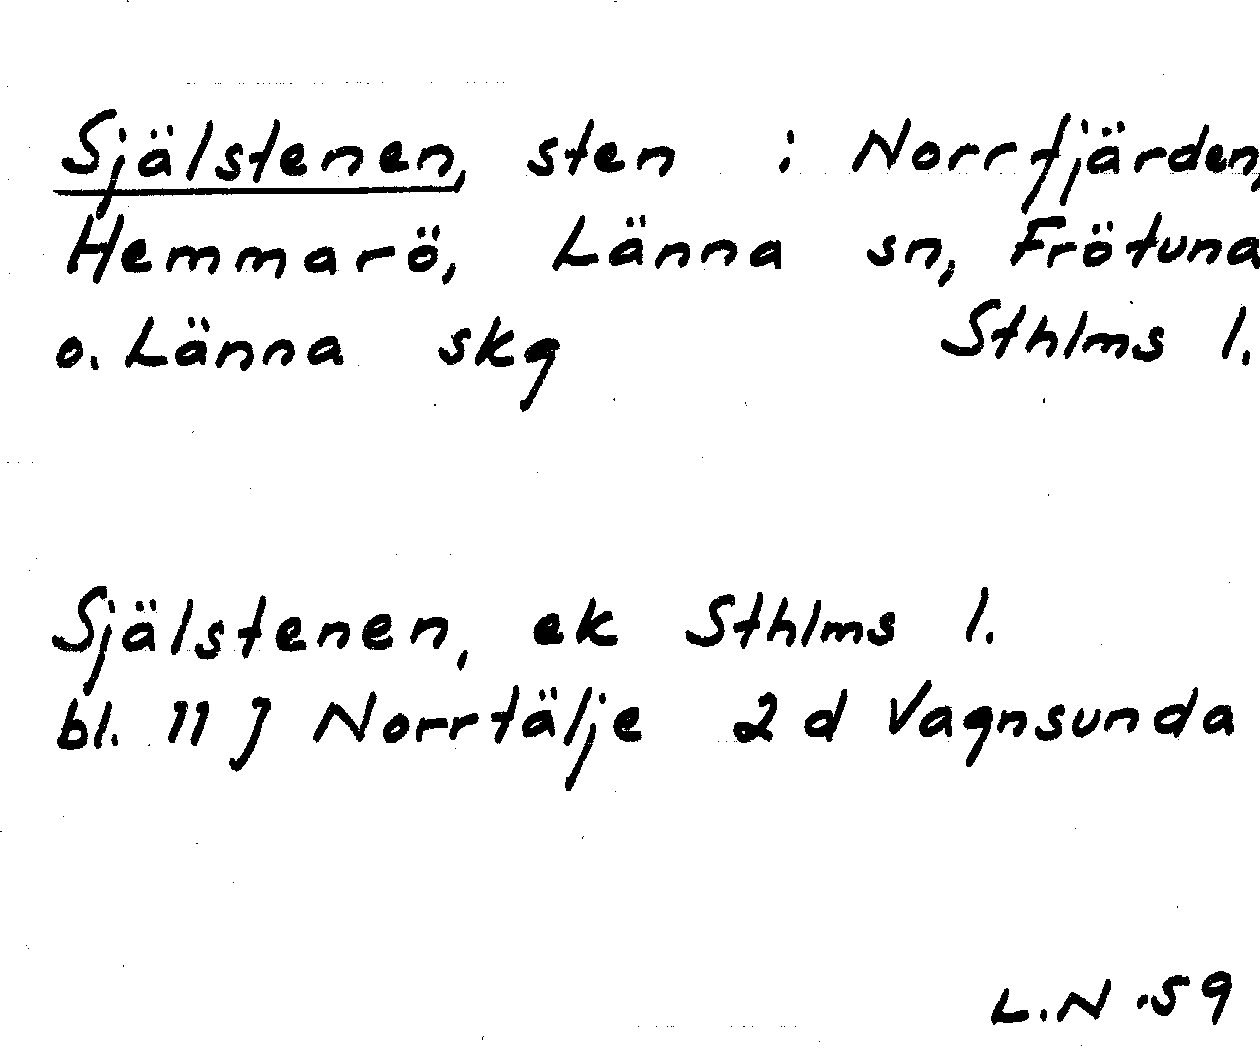 Själstenen, sten i Norrfjärden,
Hemmarö, Länna sn, Frötuna
o. Länna skg Sthlms l.
Själstenen, ek Sthlms l.
bl. 11 J Norrtälje 2 d Vagnsunda
L.N .59